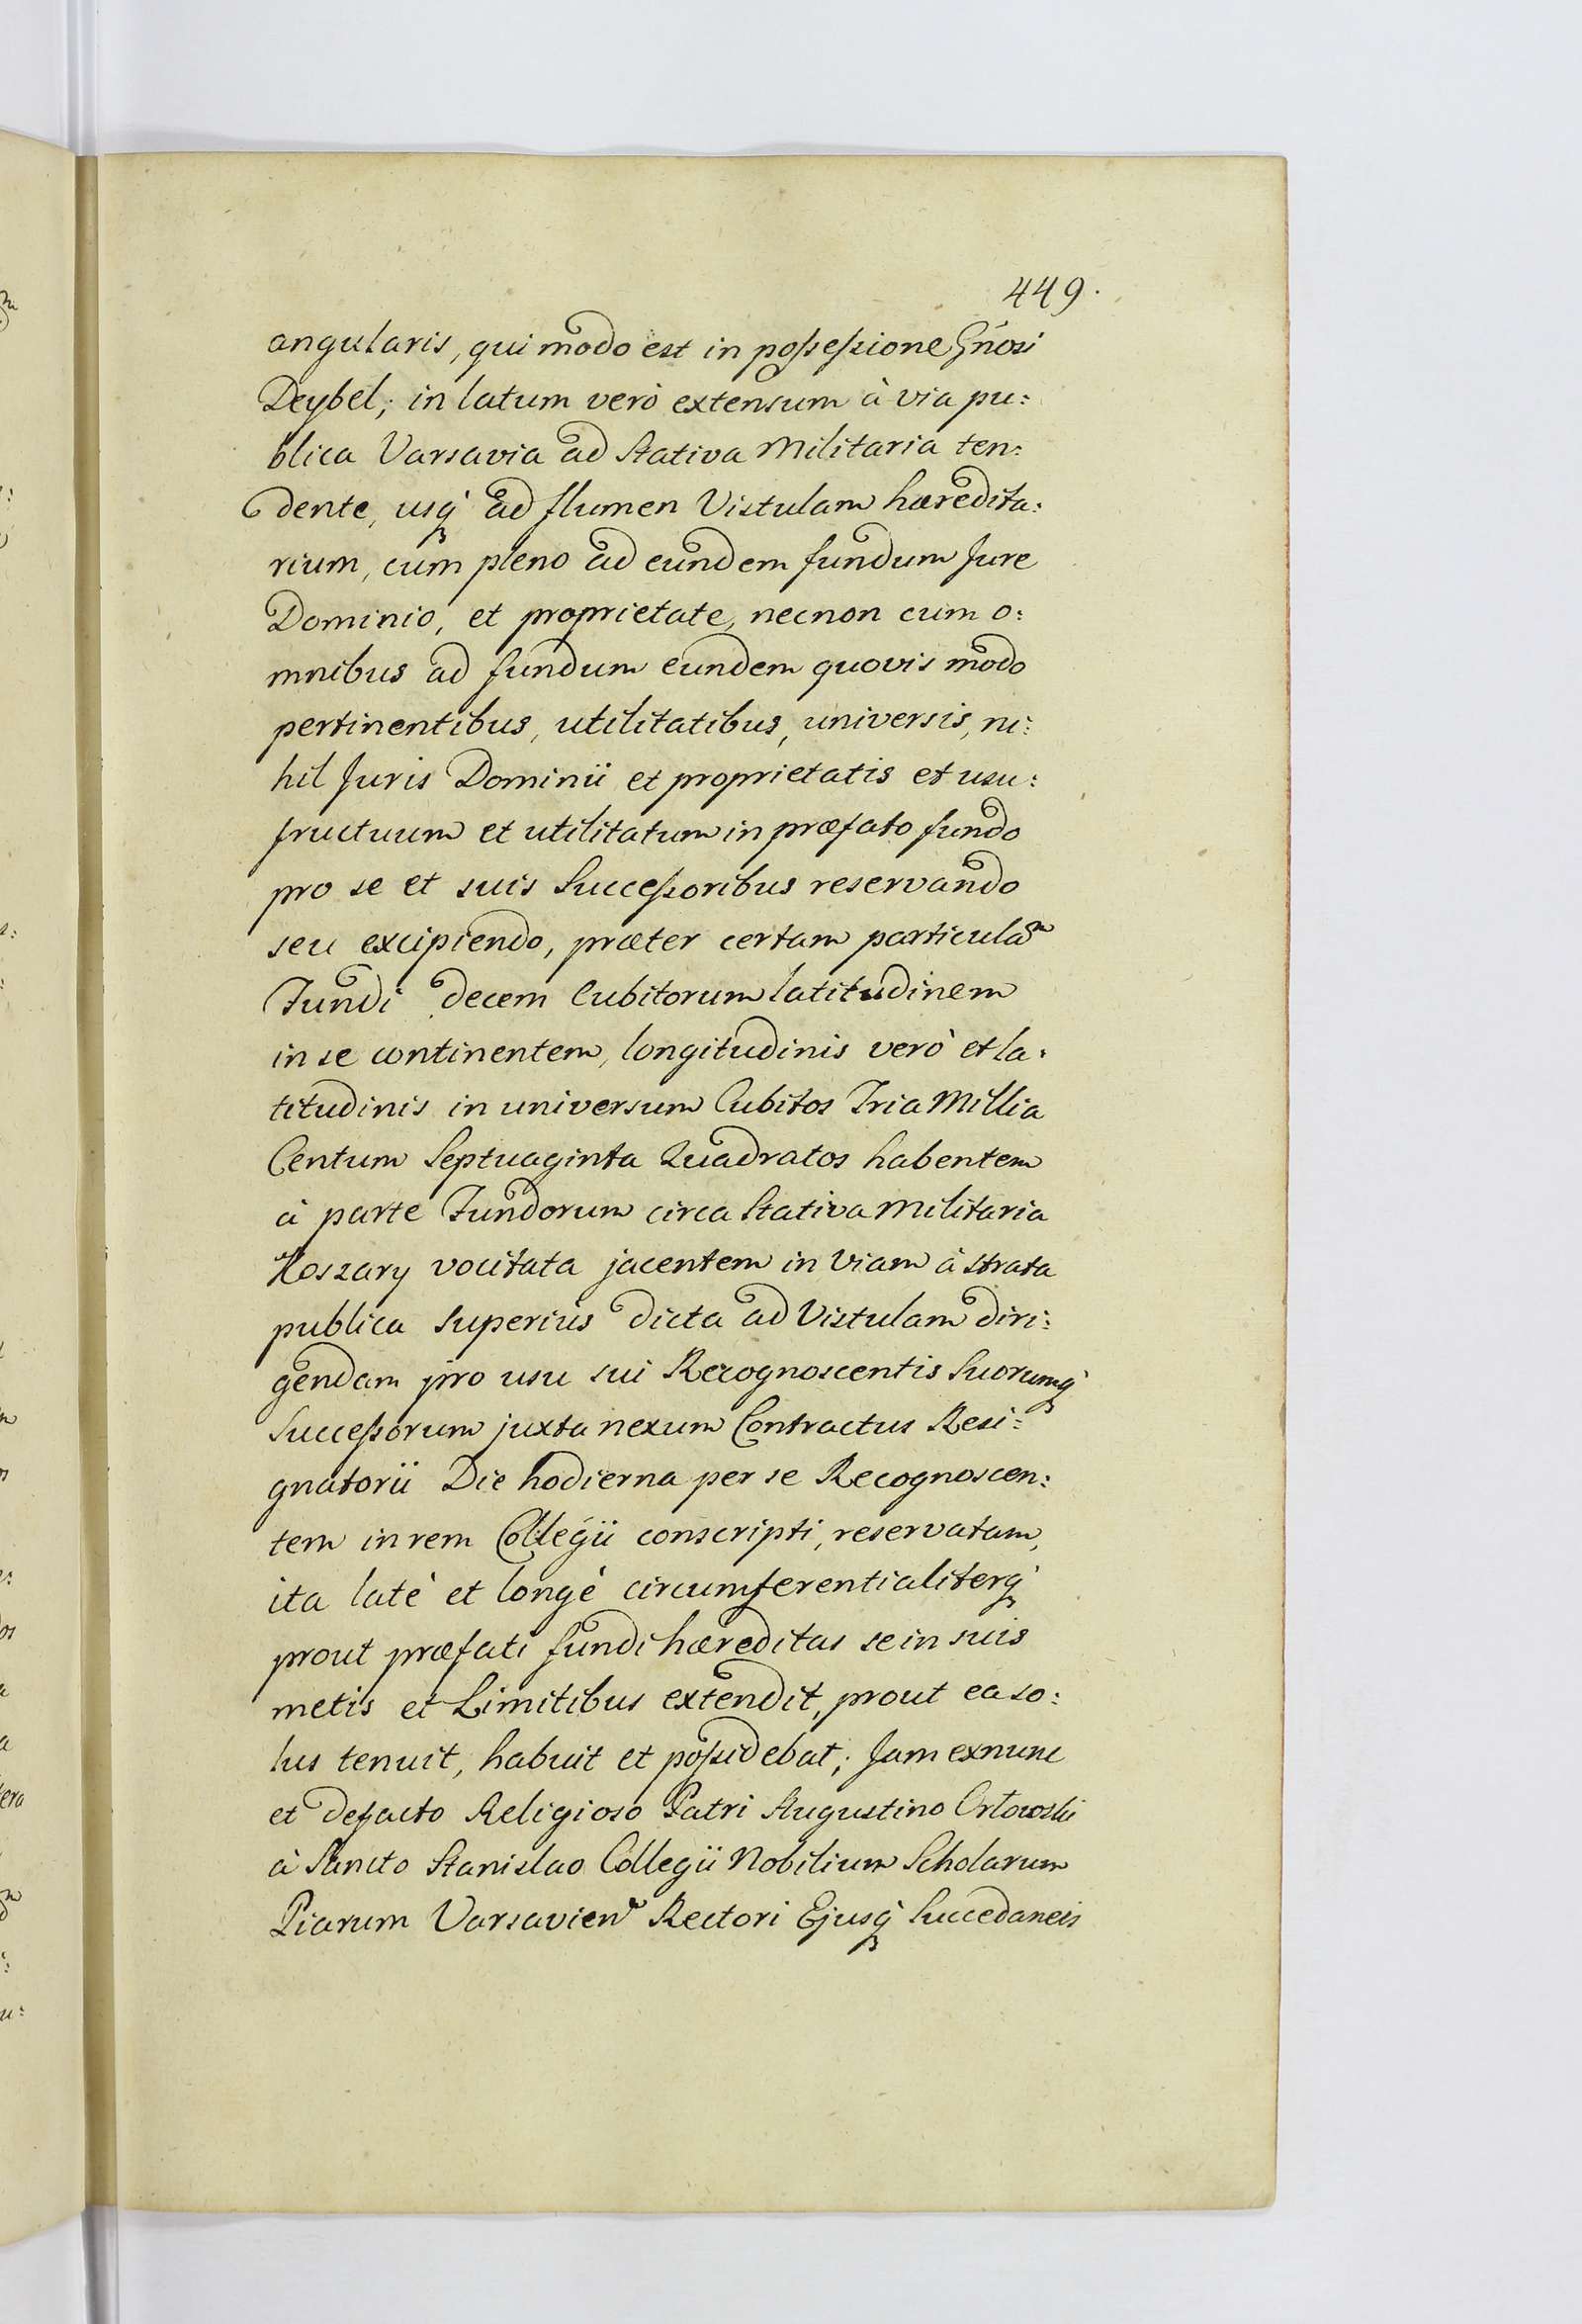 449.
angularis, qui modo est in possessione Gnosi
Deybel; in latum verò extensum à via pu:
blica Varsavia ad Stativa Militaria ten:
dente, usq́ ad flumen Vistulam hæredita:
rium, cum pleno ad eundem fundum Jure
Dominio, et proprietate, necnon cum o:
mnibus ad fundum eundem quovis modo
pertinentibus, utilitatibus, universis, ni:
hil Juris Dominii et proprietatis et usu:
fructuum et utilitatum in præfato fundo
pro se et suis Successoribus reservando
seu excipiendo, præter certam particulam
Fundi decem Cubitorum latitudinem
in se continentem, longitudinis verò et la:
titudinis in universum Cubitos Tria Millia
Centum Septuaginta Quadratos habentem
à parte Fundorum circa Stativa Militaria
Koszary vocitata jacentem in Viam à strata
publica superius dicta ad Vistulam diri:
gendam pro usu sui Recognoscentis Suorumq́
Successorum juxta nexum Contractus Resi:
gnatorii Die hodierna per se Recognoscen:
tem in rem Collegii conscripti, reservatam,
ita latè et longè circumferentialiterq́
prout præfati fundi hæreditas se in suis
metis et Limitibus extendit, prout ea so:
lus tenuit, habuit et possidebat; Jam exnunc
et defacto Religioso Patri Augustino Orłowski
à Sancto Stanislao Collegii Nobilium Scholarum
Piarum Varsavien Rectori Ejusq́ Succedaneis